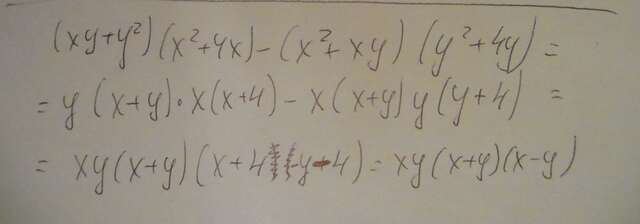 (xy+y²)(x²+4x)-(x²+xy)(y²+4y)=
=y(x+y)·x(x+4)-x(x+y)y(y+4)=
=xy(x+y)(x+4-y-4)=xy(x+y)(x-y)